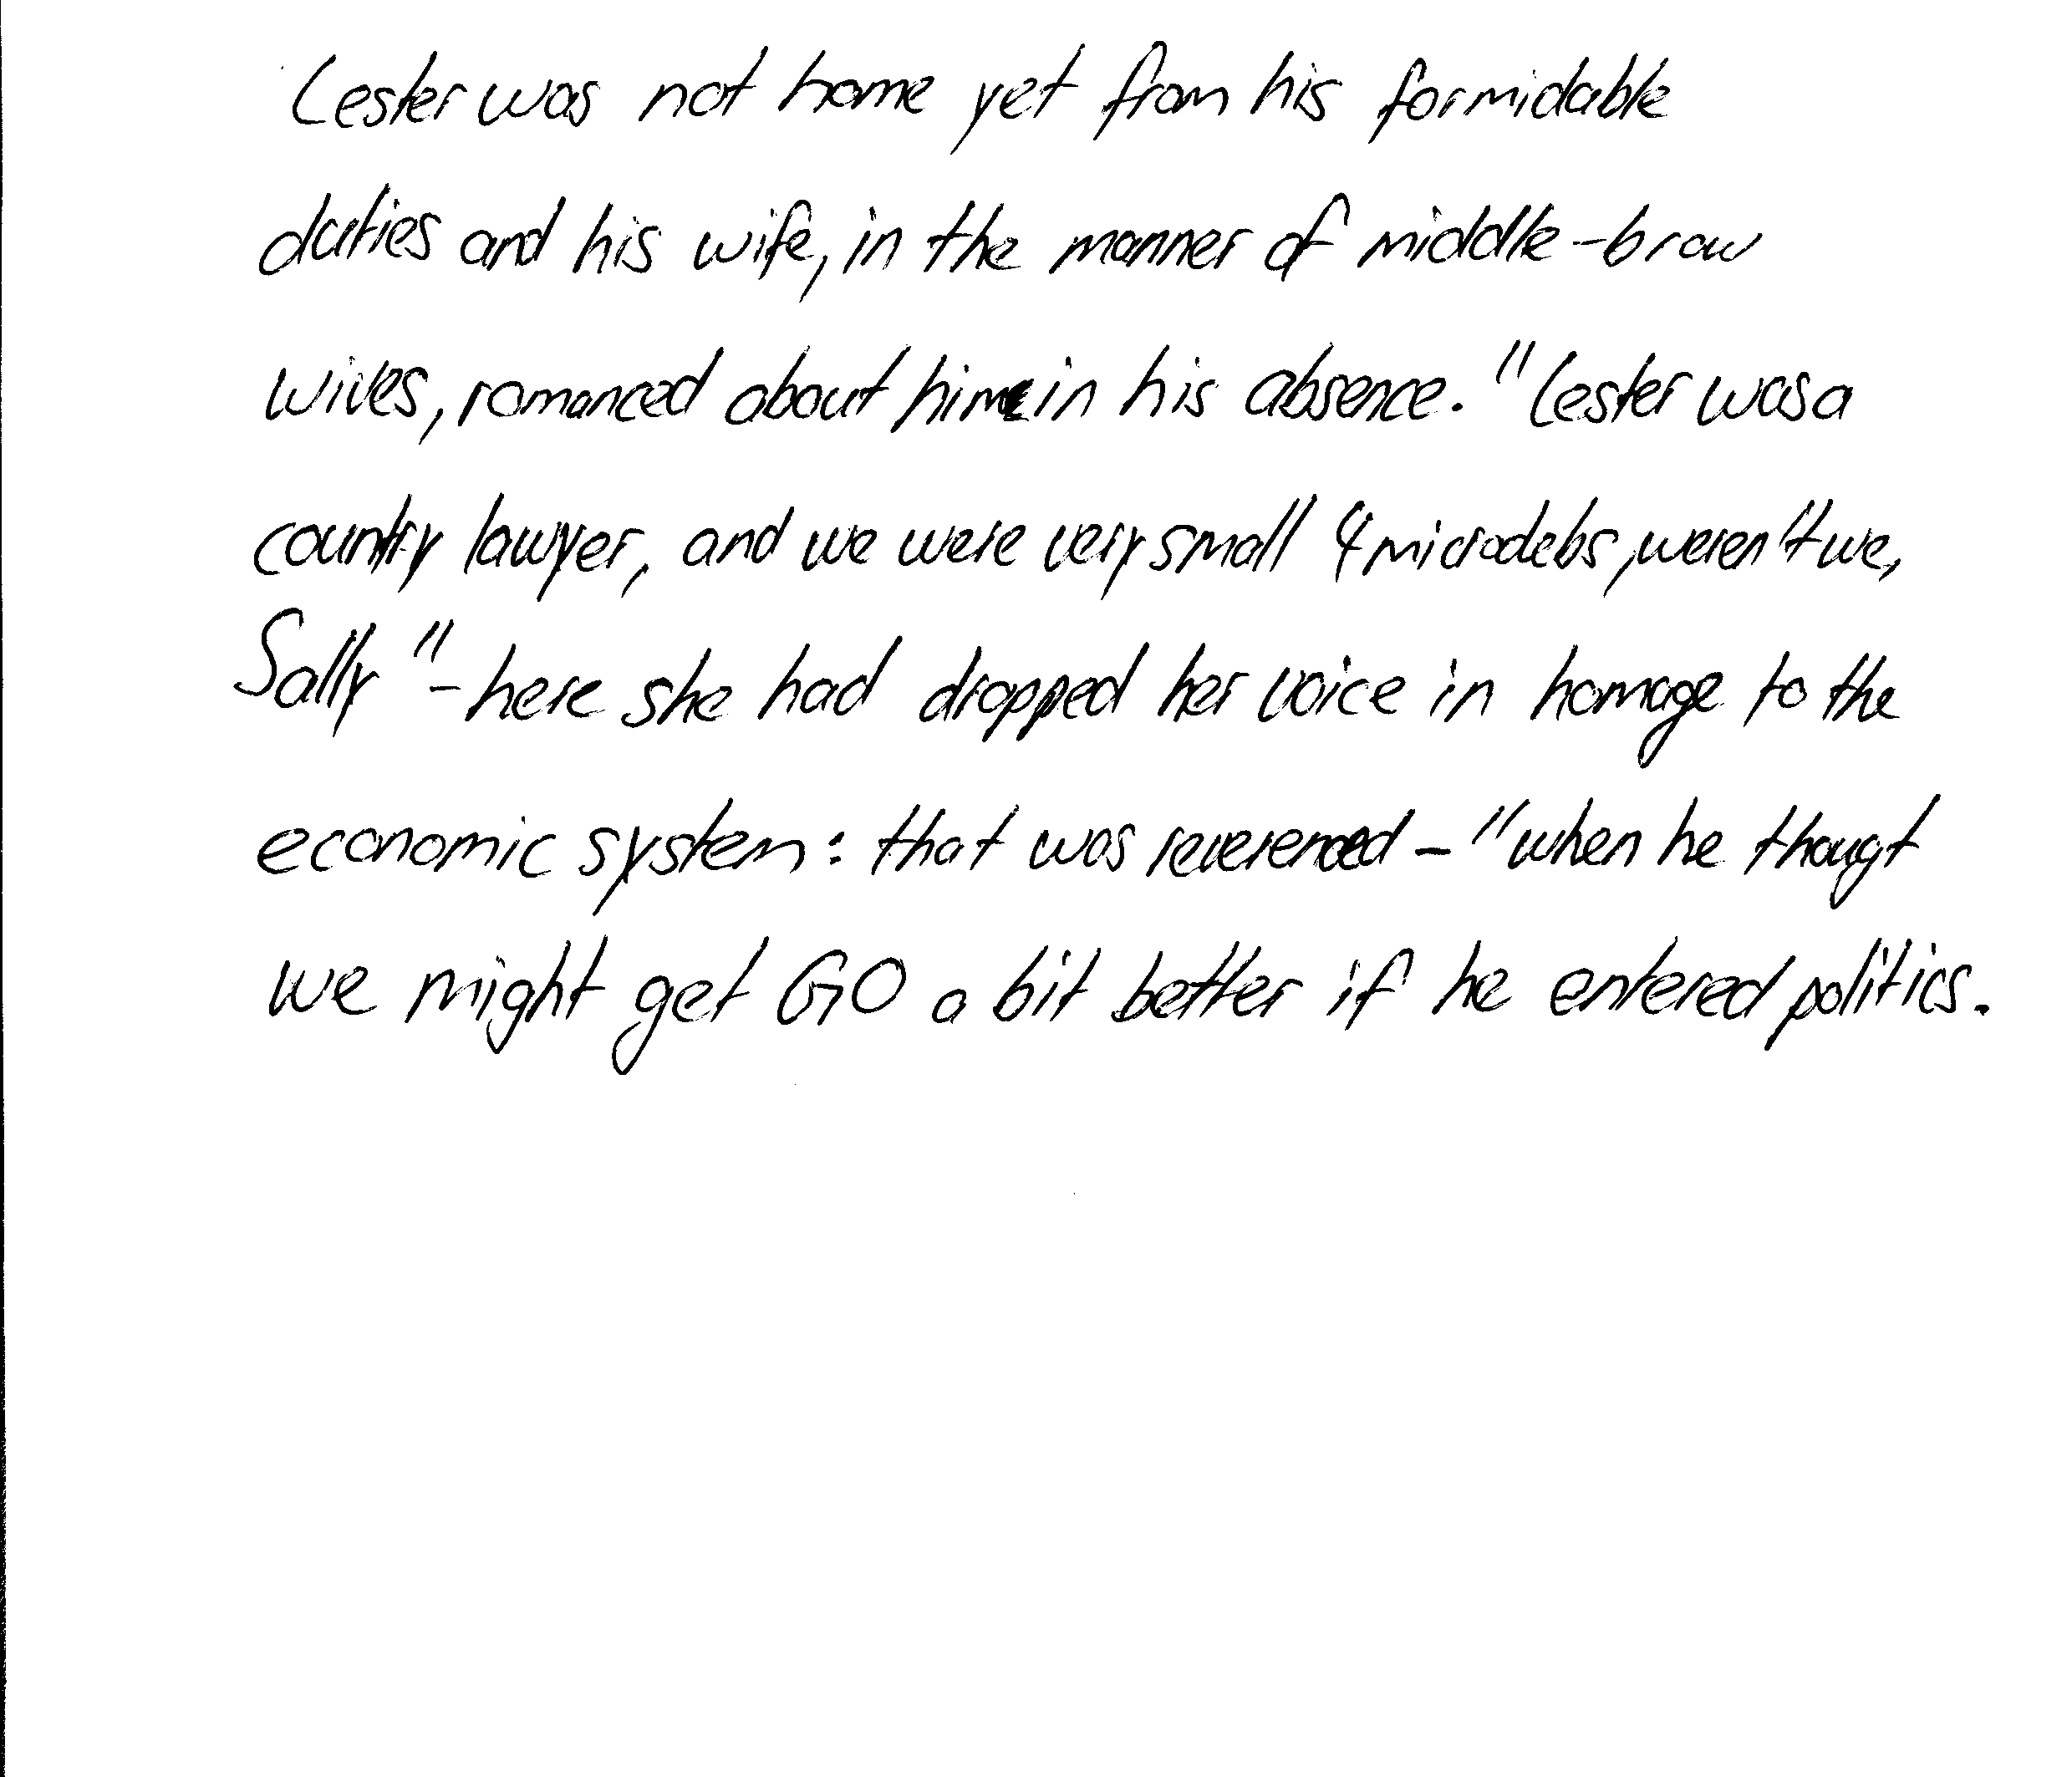 Lester was not home yet from his formidable
duties and his wife, in the manner of middle-brow
wives, romanced about him in his absence. "Lester was a
country lawyer, and we were very small 4 microdebs, weren't we,
Sally" - here she had dropped her voice in homage to the
economic system: that was reverenced - "when he thougt
we might get GO a bit better if he entered politics.